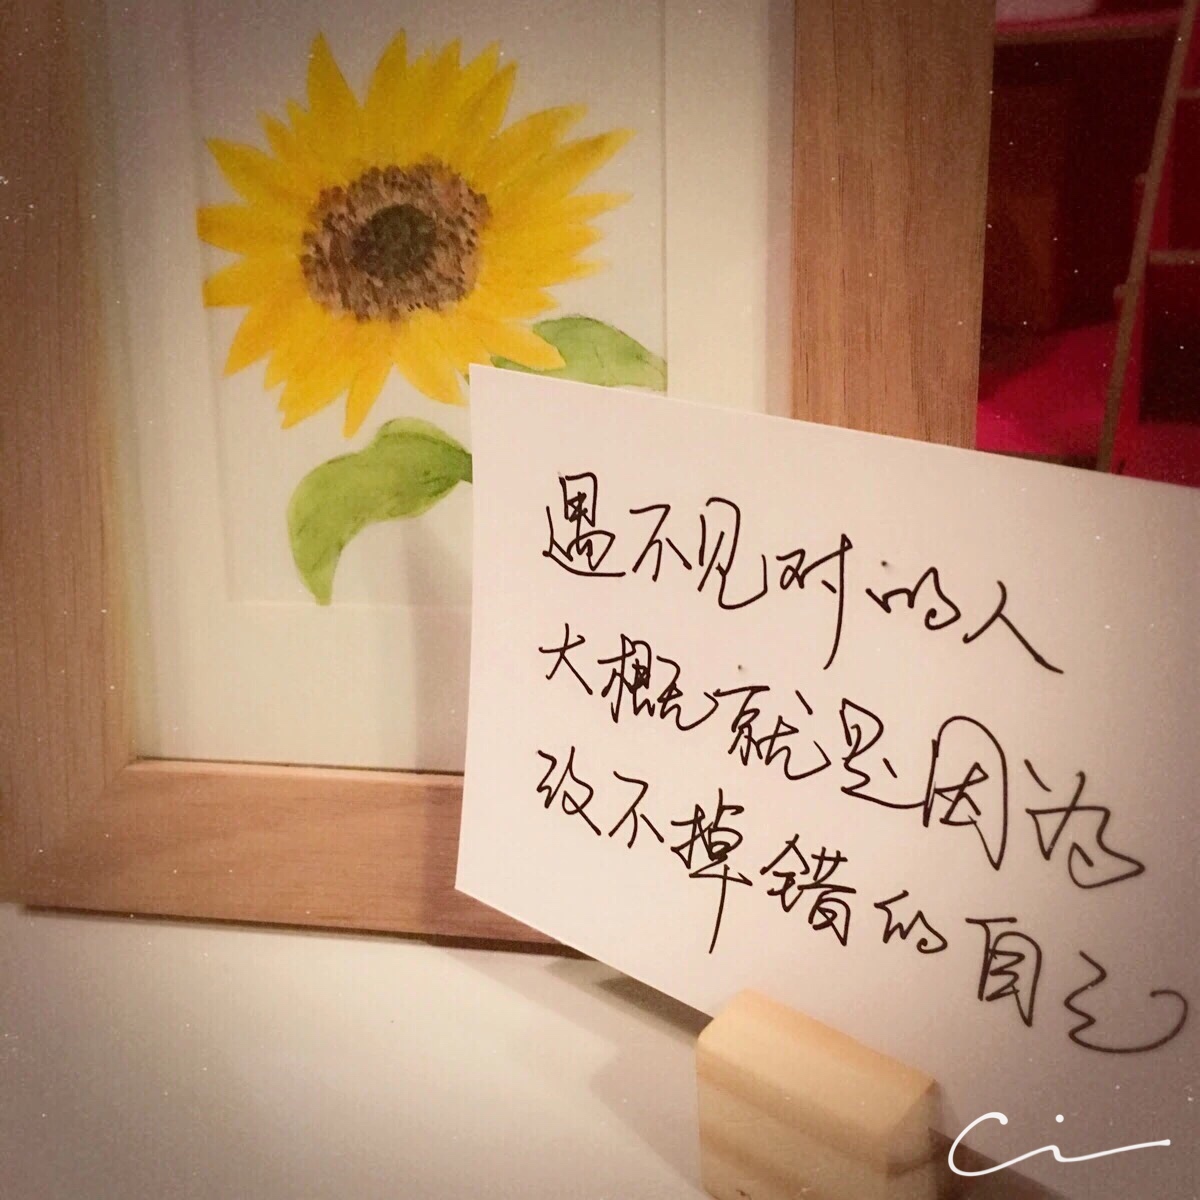 遇不见对的人
大概就是因为
改不掉错的自己
Ci